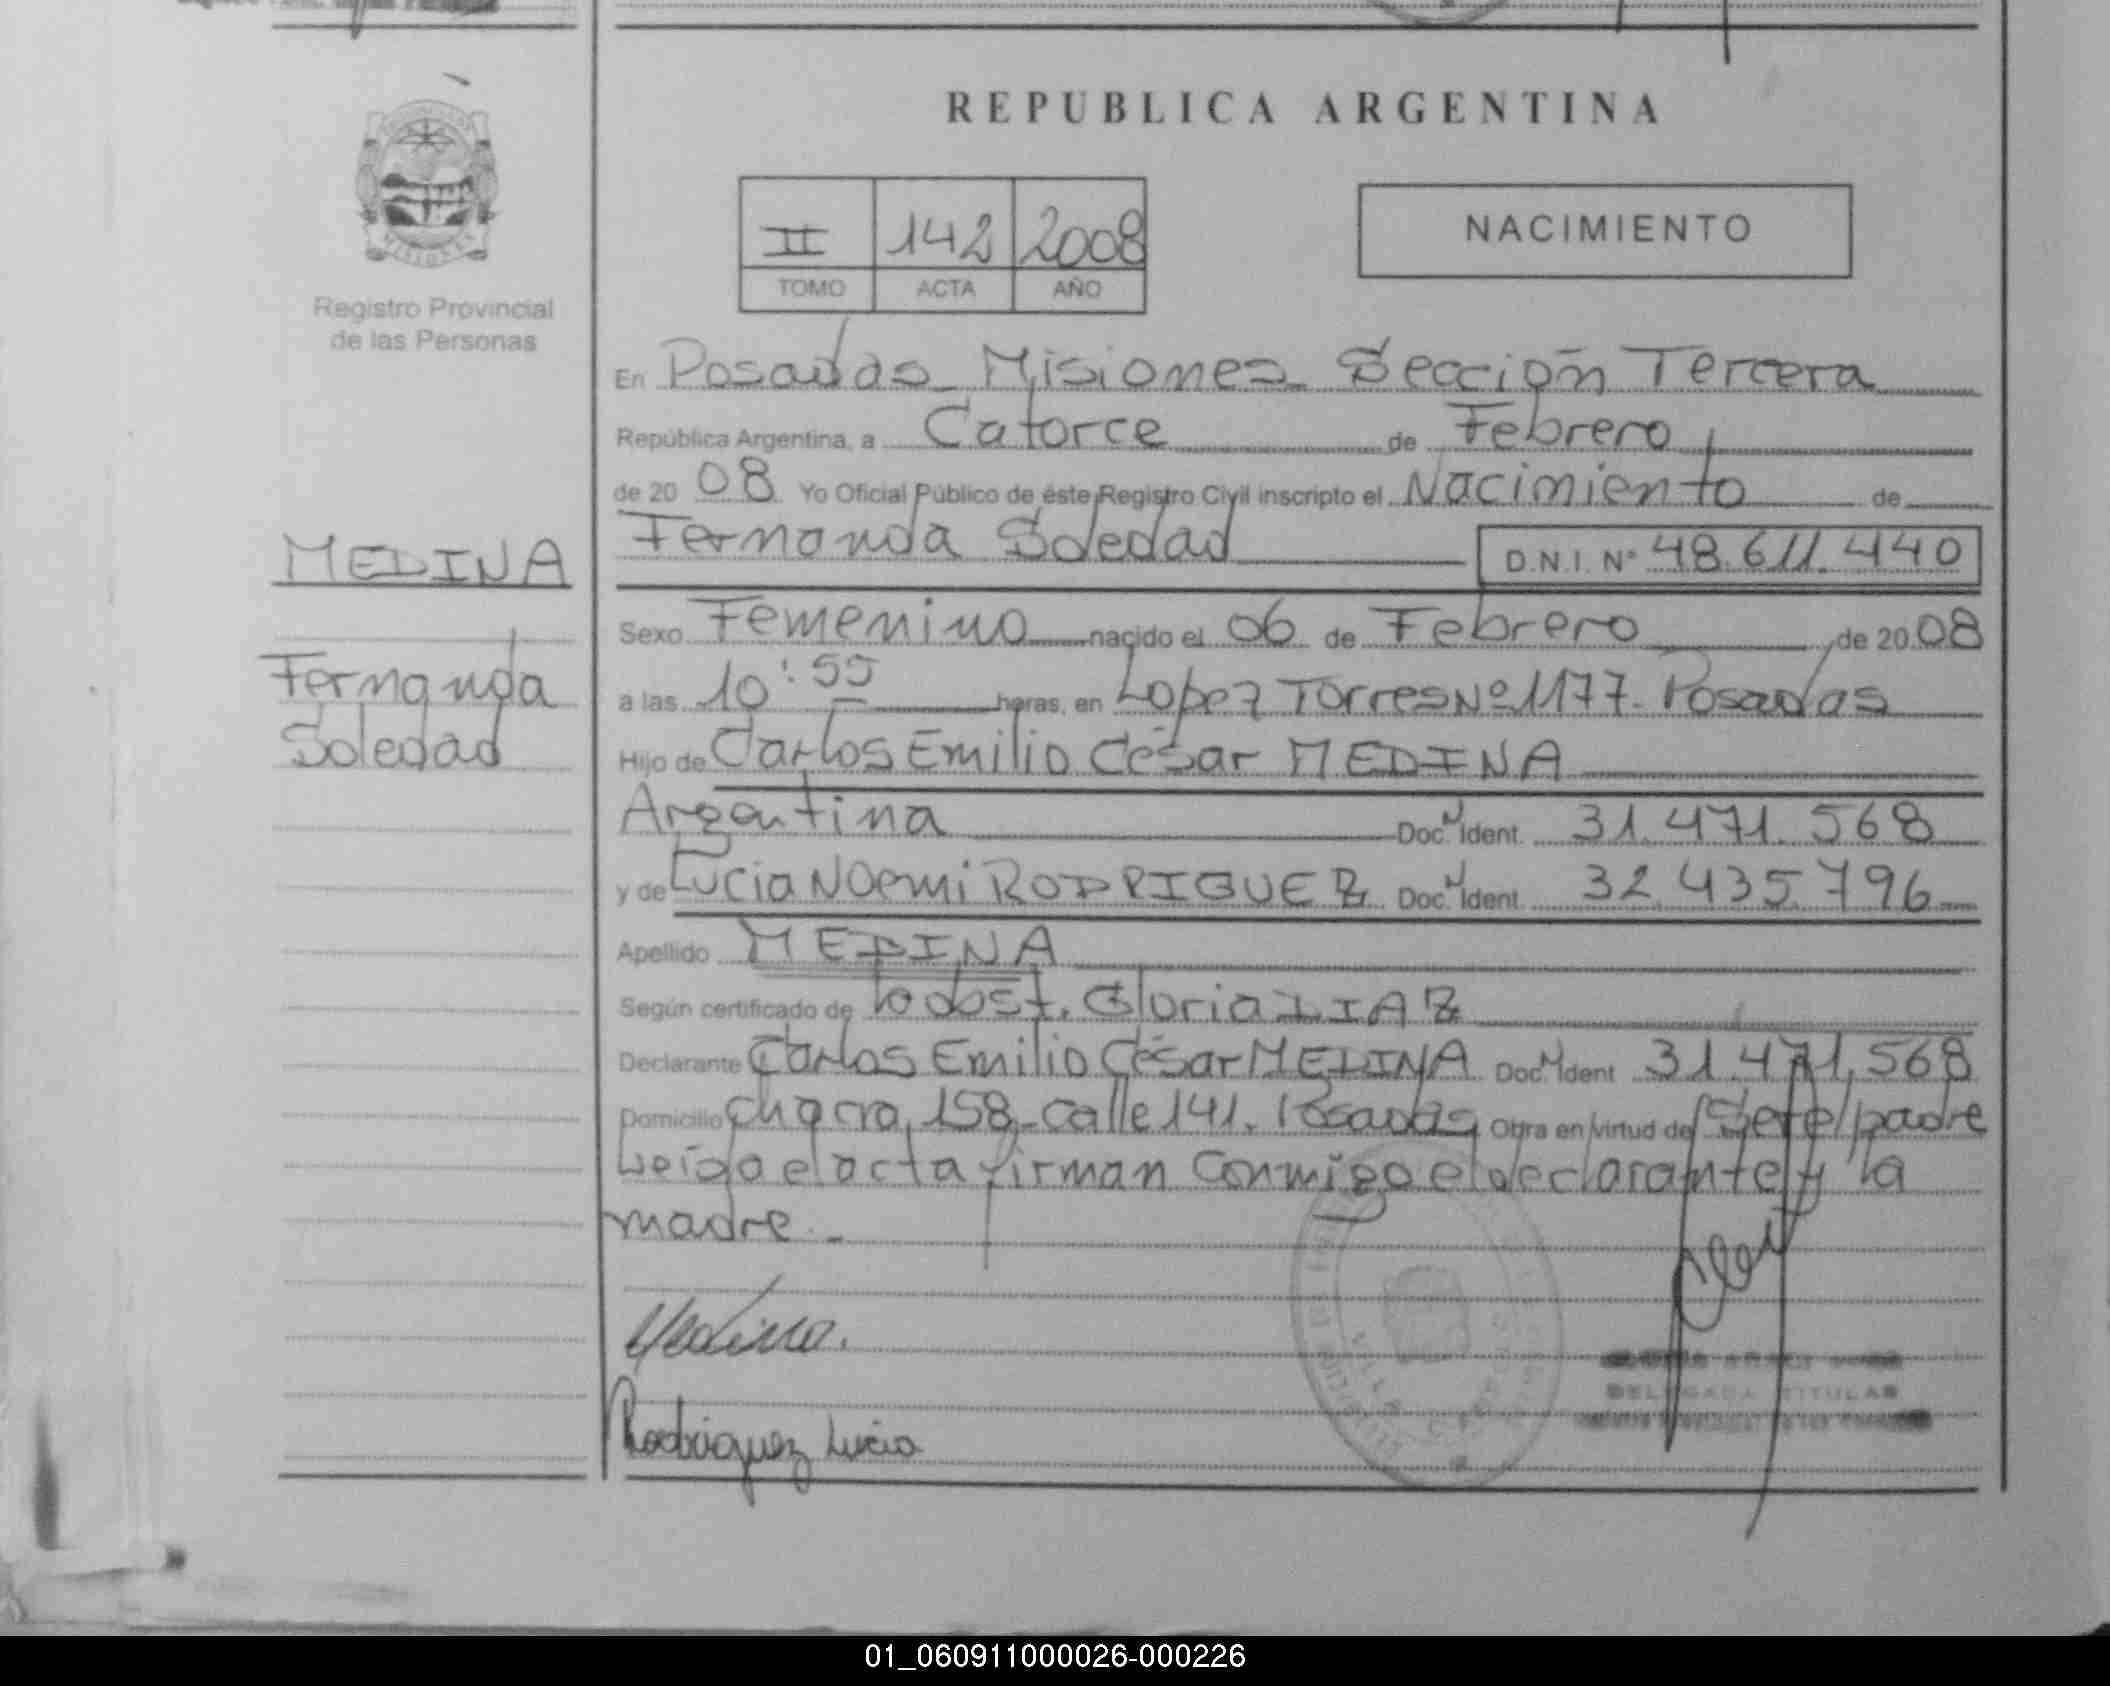 REPUBLICA ARGENTINA
II 142 2008
TOMO ACTA AÑO
NACIMIENTO
Registro Provincial
de las Personas
MEDINA
Fernanda
Soledad
En Posadas Misiones Sección Tercera
República Argentina, a Catorce de Febrero
de 20 08 Yo Oficial Público de éste Registro Civil inscripto el Nacimiento de
Fernanda Soledad D.N.I. Nº 48.611.440
Sexo Femenino nacido el 06 de Febrero de 20 08
a las 10:55 horas, en Lopez Torres Nº 1177. Posadas
Hijo de Carlos Emilio César MEDINA
Argentina Doc. N Ident. 31.471.568
y de Lucia Noemi RODRIGUEZ Doc. N Ident. 32.435.796
Apellido MEDINA
Según certificado de la obst. Gloria DIAZ
Declarante Carlos Emilio César MEDINA Doc. N Ident 31.471.568
Domicilio Chacra 158 - calle 141. Posadas Obra en virtud de Ser el padre
Leída el acta firman conmigo el declarante y la
madre. -
Medina.
Rodriguez Lucia
DELEGADA TITULAR
01_060911000026-000226